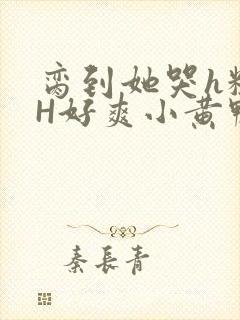 脔到她哭h
H好爽小黄鸭
秦長青